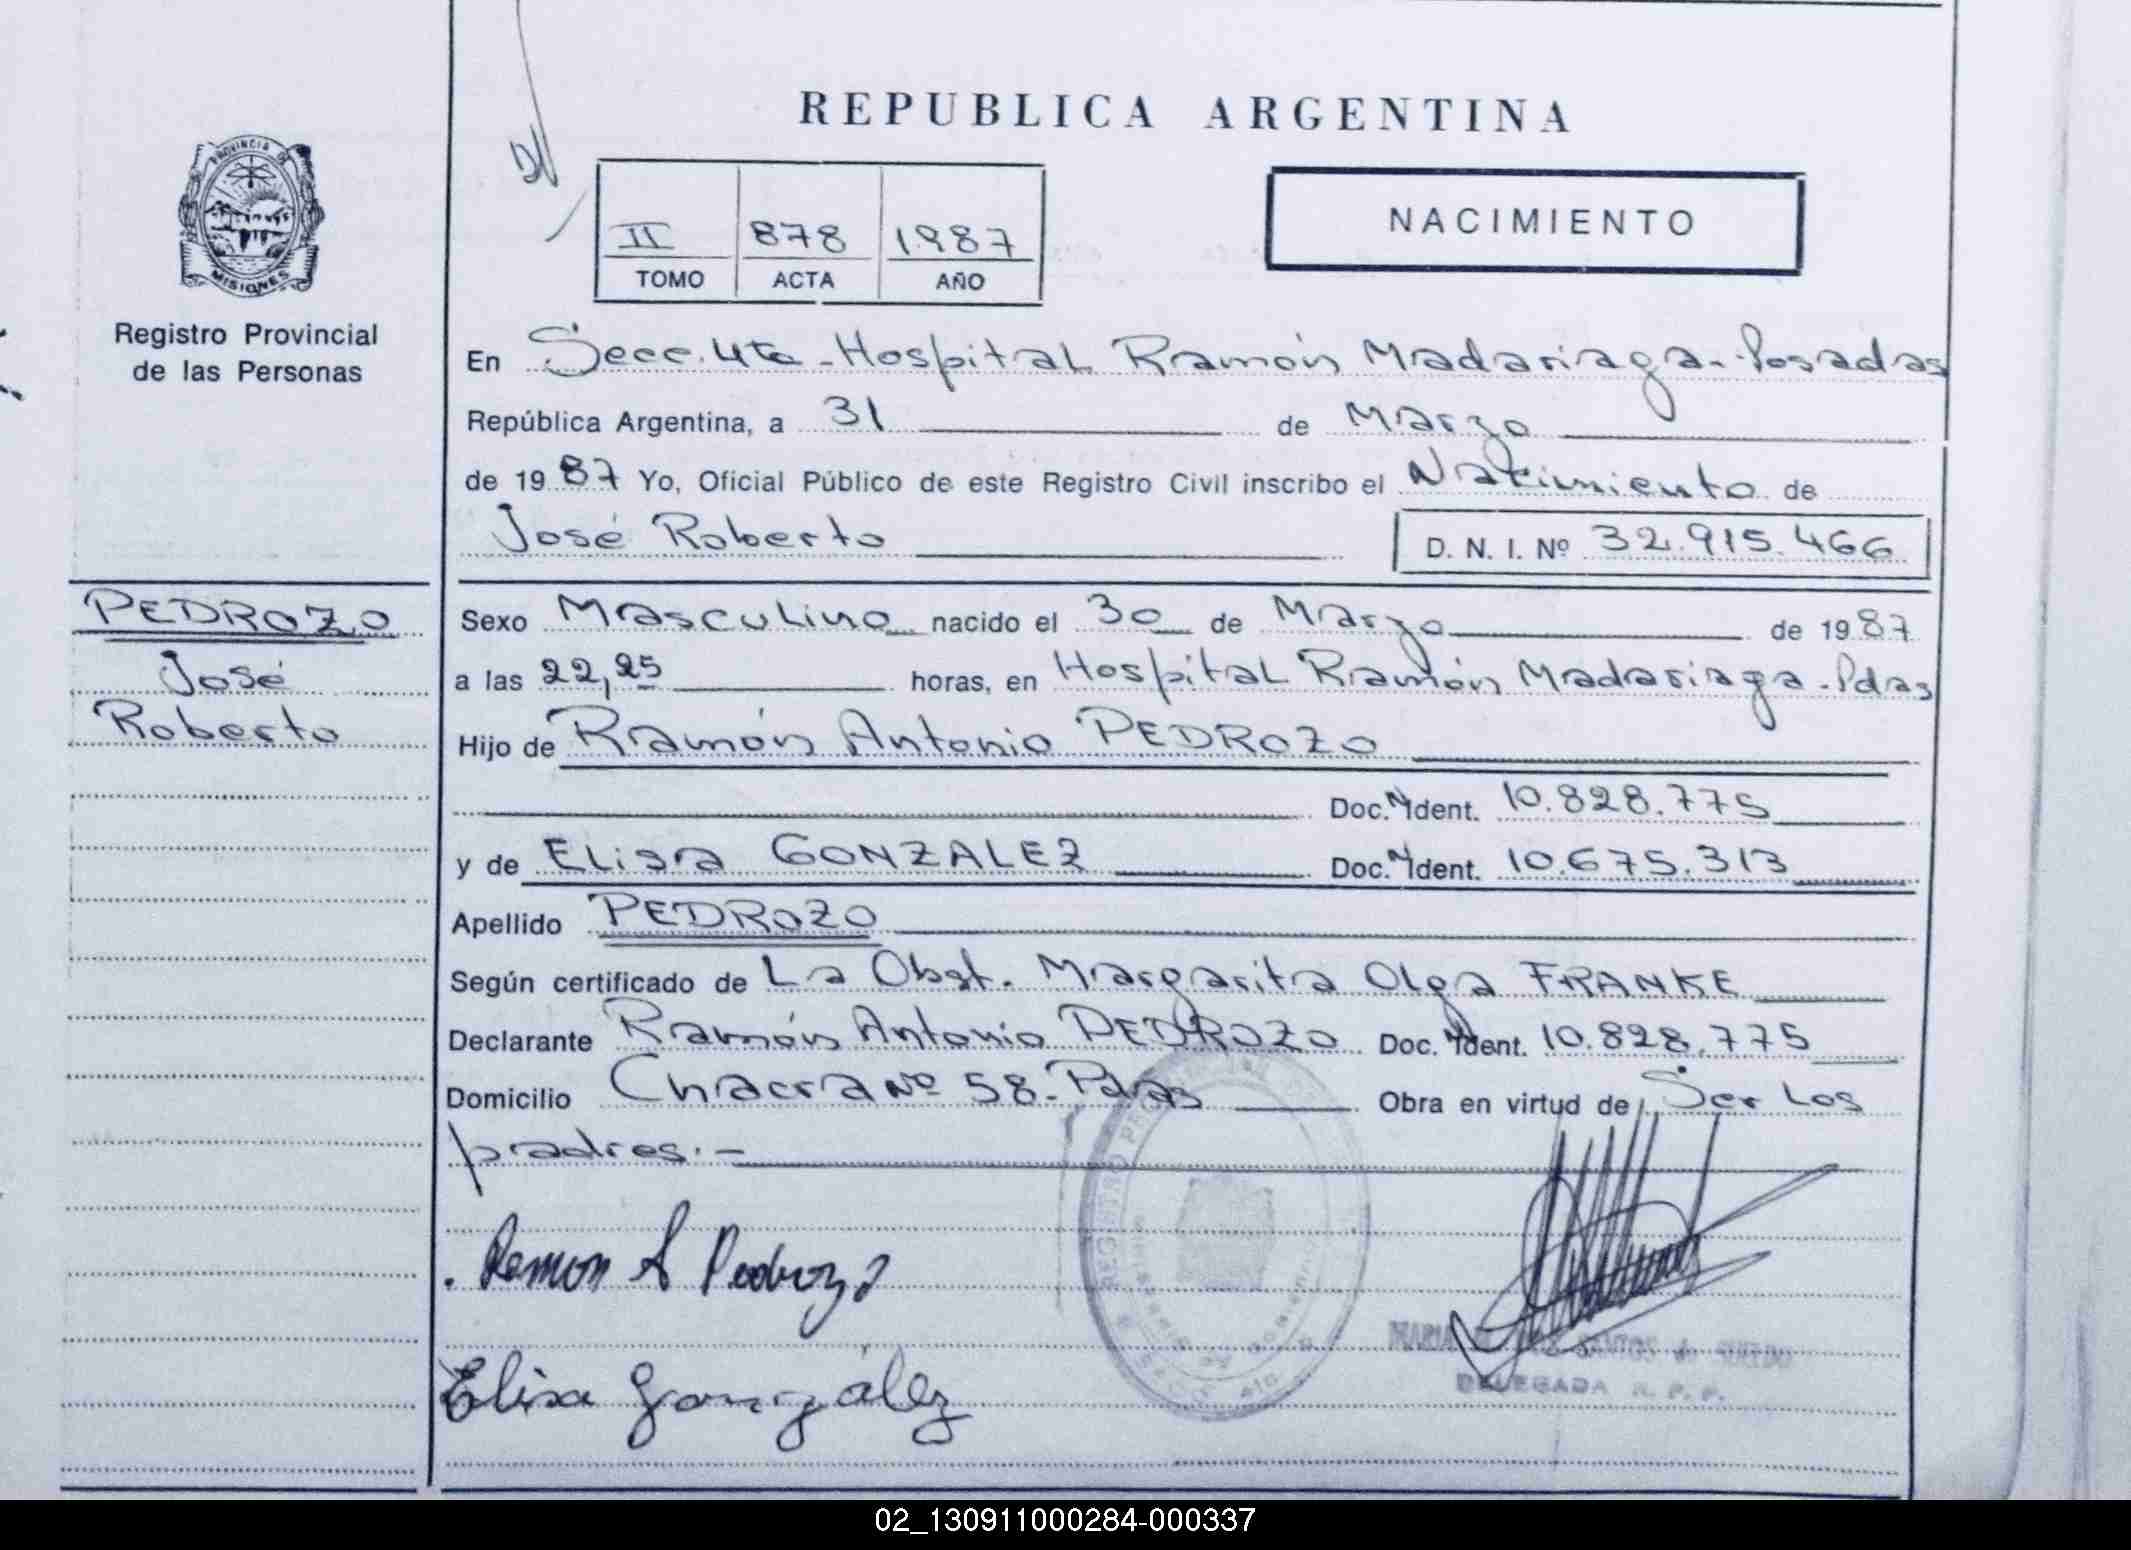 REPUBLICA ARGENTINA
II 878 1987
TOMO ACTA AÑO
NACIMIENTO
PROVINCIA DE
MISIONES
Registro Provincial
de las Personas
En Secc. 4ta - Hospital Ramón Madariaga - Posadas
República Argentina, a 31 de Marzo
de 1987 Yo, Oficial Público de este Registro Civil inscribo el Nacimiento de
José Roberto D. N. I. Nº 32.915.466
PEDROZO
José
Roberto
Sexo Masculino nacido el 30 de Marzo de 1987
a las 22,25 horas, en Hospital Ramón Madariaga - Pdas
Hijo de Ramón Antonio PEDROZO
Doc. Ident. 10.828.775
y de Elisa GONZALEZ Doc. Ident. 10.675.313
Apellido PEDROZO
Según certificado de La Obst. Margarita Olga FRANKE
Declarante Ramón Antonio PEDROZO Doc. Ident. 10.828.775
Domicilio Chacra Nº 58 - Pdas Obra en virtud de Ser Los
padres. -
Ramon A Pedrozo
Elisa González
REGISTRO
MARIA SANTOS de
DELEGADA R. P. P.
02_130911000284-000337